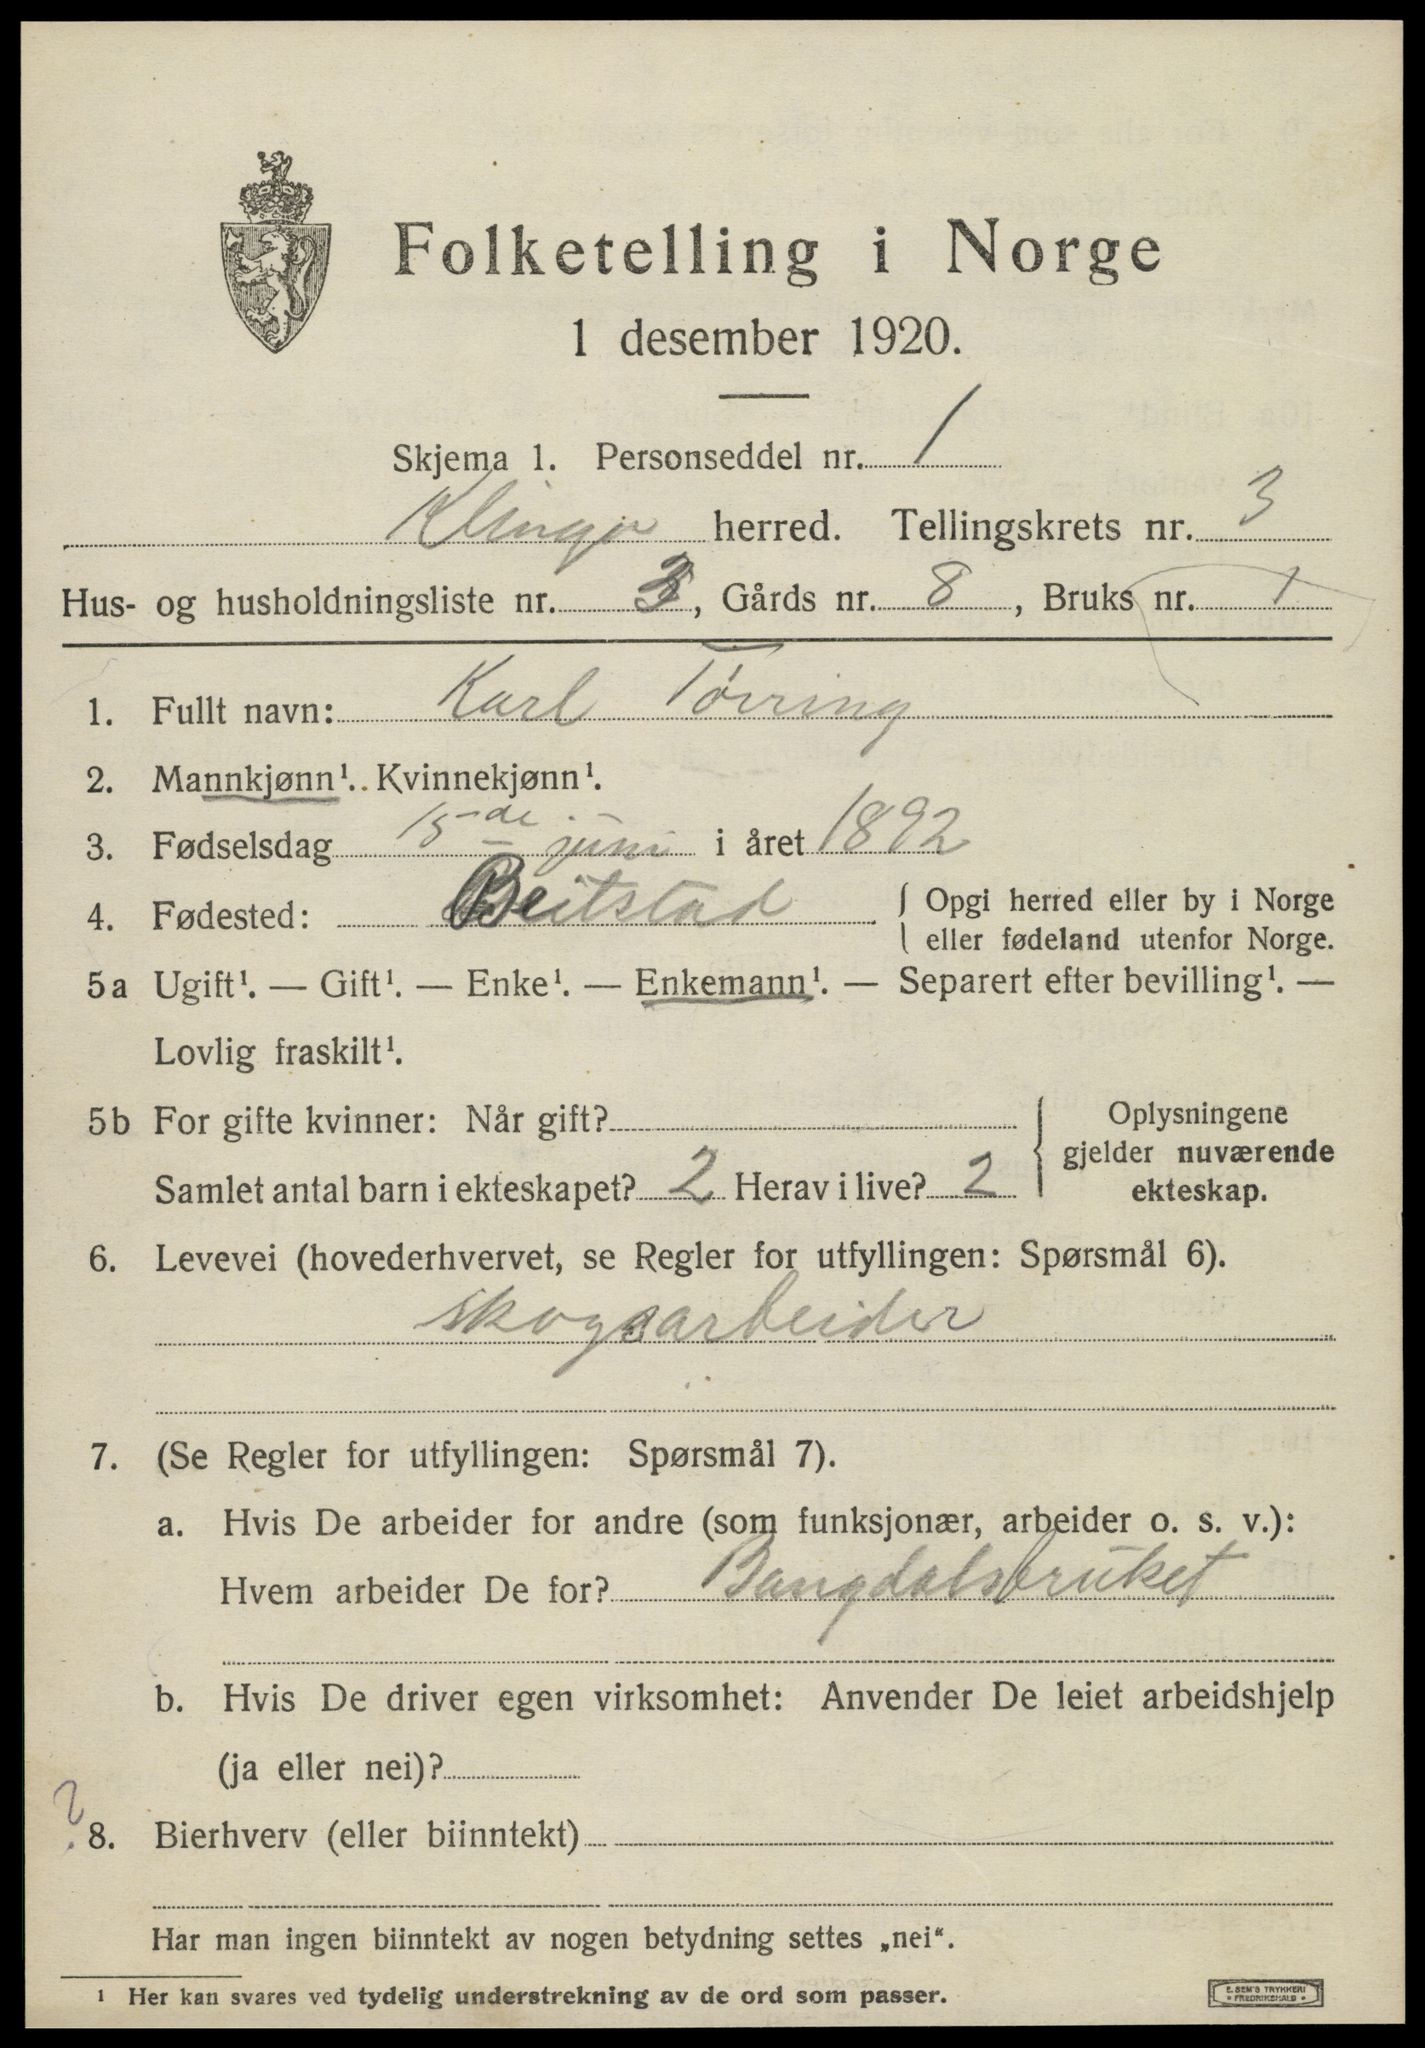 Folketelling i Norge
1 desember 1920.
Skjema 1. Personseddel nr. 1
Klinga herred. Tellingskrets nr. 3
Hus- og husholdningsliste nr. 3, Gårds nr. 8, Bruks nr. 1
1. Fullt navn: Karl Tørring
2. Mannkjønn¹. Kvinnekjønn¹.
3. Fødselsdag 15de juni i året 1892
4. Fødested: Beitstad { Opgi herred eller by i Norge
eller fødeland utenfor Norge.
5a Ugift¹. — Gift¹. — Enke¹. — Enkemann¹. — Separert efter bevilling¹. —
Lovlig fraskilt¹.
5b For gifte kvinner: Når gift? { Oplysningene
gjelder nuværende
Samlet antal barn i ekteskapet? 2 Herav i live? 2 ekteskap.
6. Levevei (hovederhvervet, se Regler for utfyllingen: Spørsmål 6).
skogsarbeider
7. (Se Regler for utfyllingen: Spørsmål 7).
a. Hvis De arbeider for andre (som funksjonær, arbeider o. s. v.):
Hvem arbeider De for? Bangdalsbruket
b. Hvis De driver egen virksomhet: Anvender De leiet arbeidshjelp
(ja eller nei)?
? 8. Bierhverv (eller biinntekt)
Har man ingen biinntekt av nogen betydning settes „nei“.
¹ Her kan svares ved tydelig understrekning av de ord som passer.
E. SEM'S TRYKKERI
* FREDRIKSHALD *